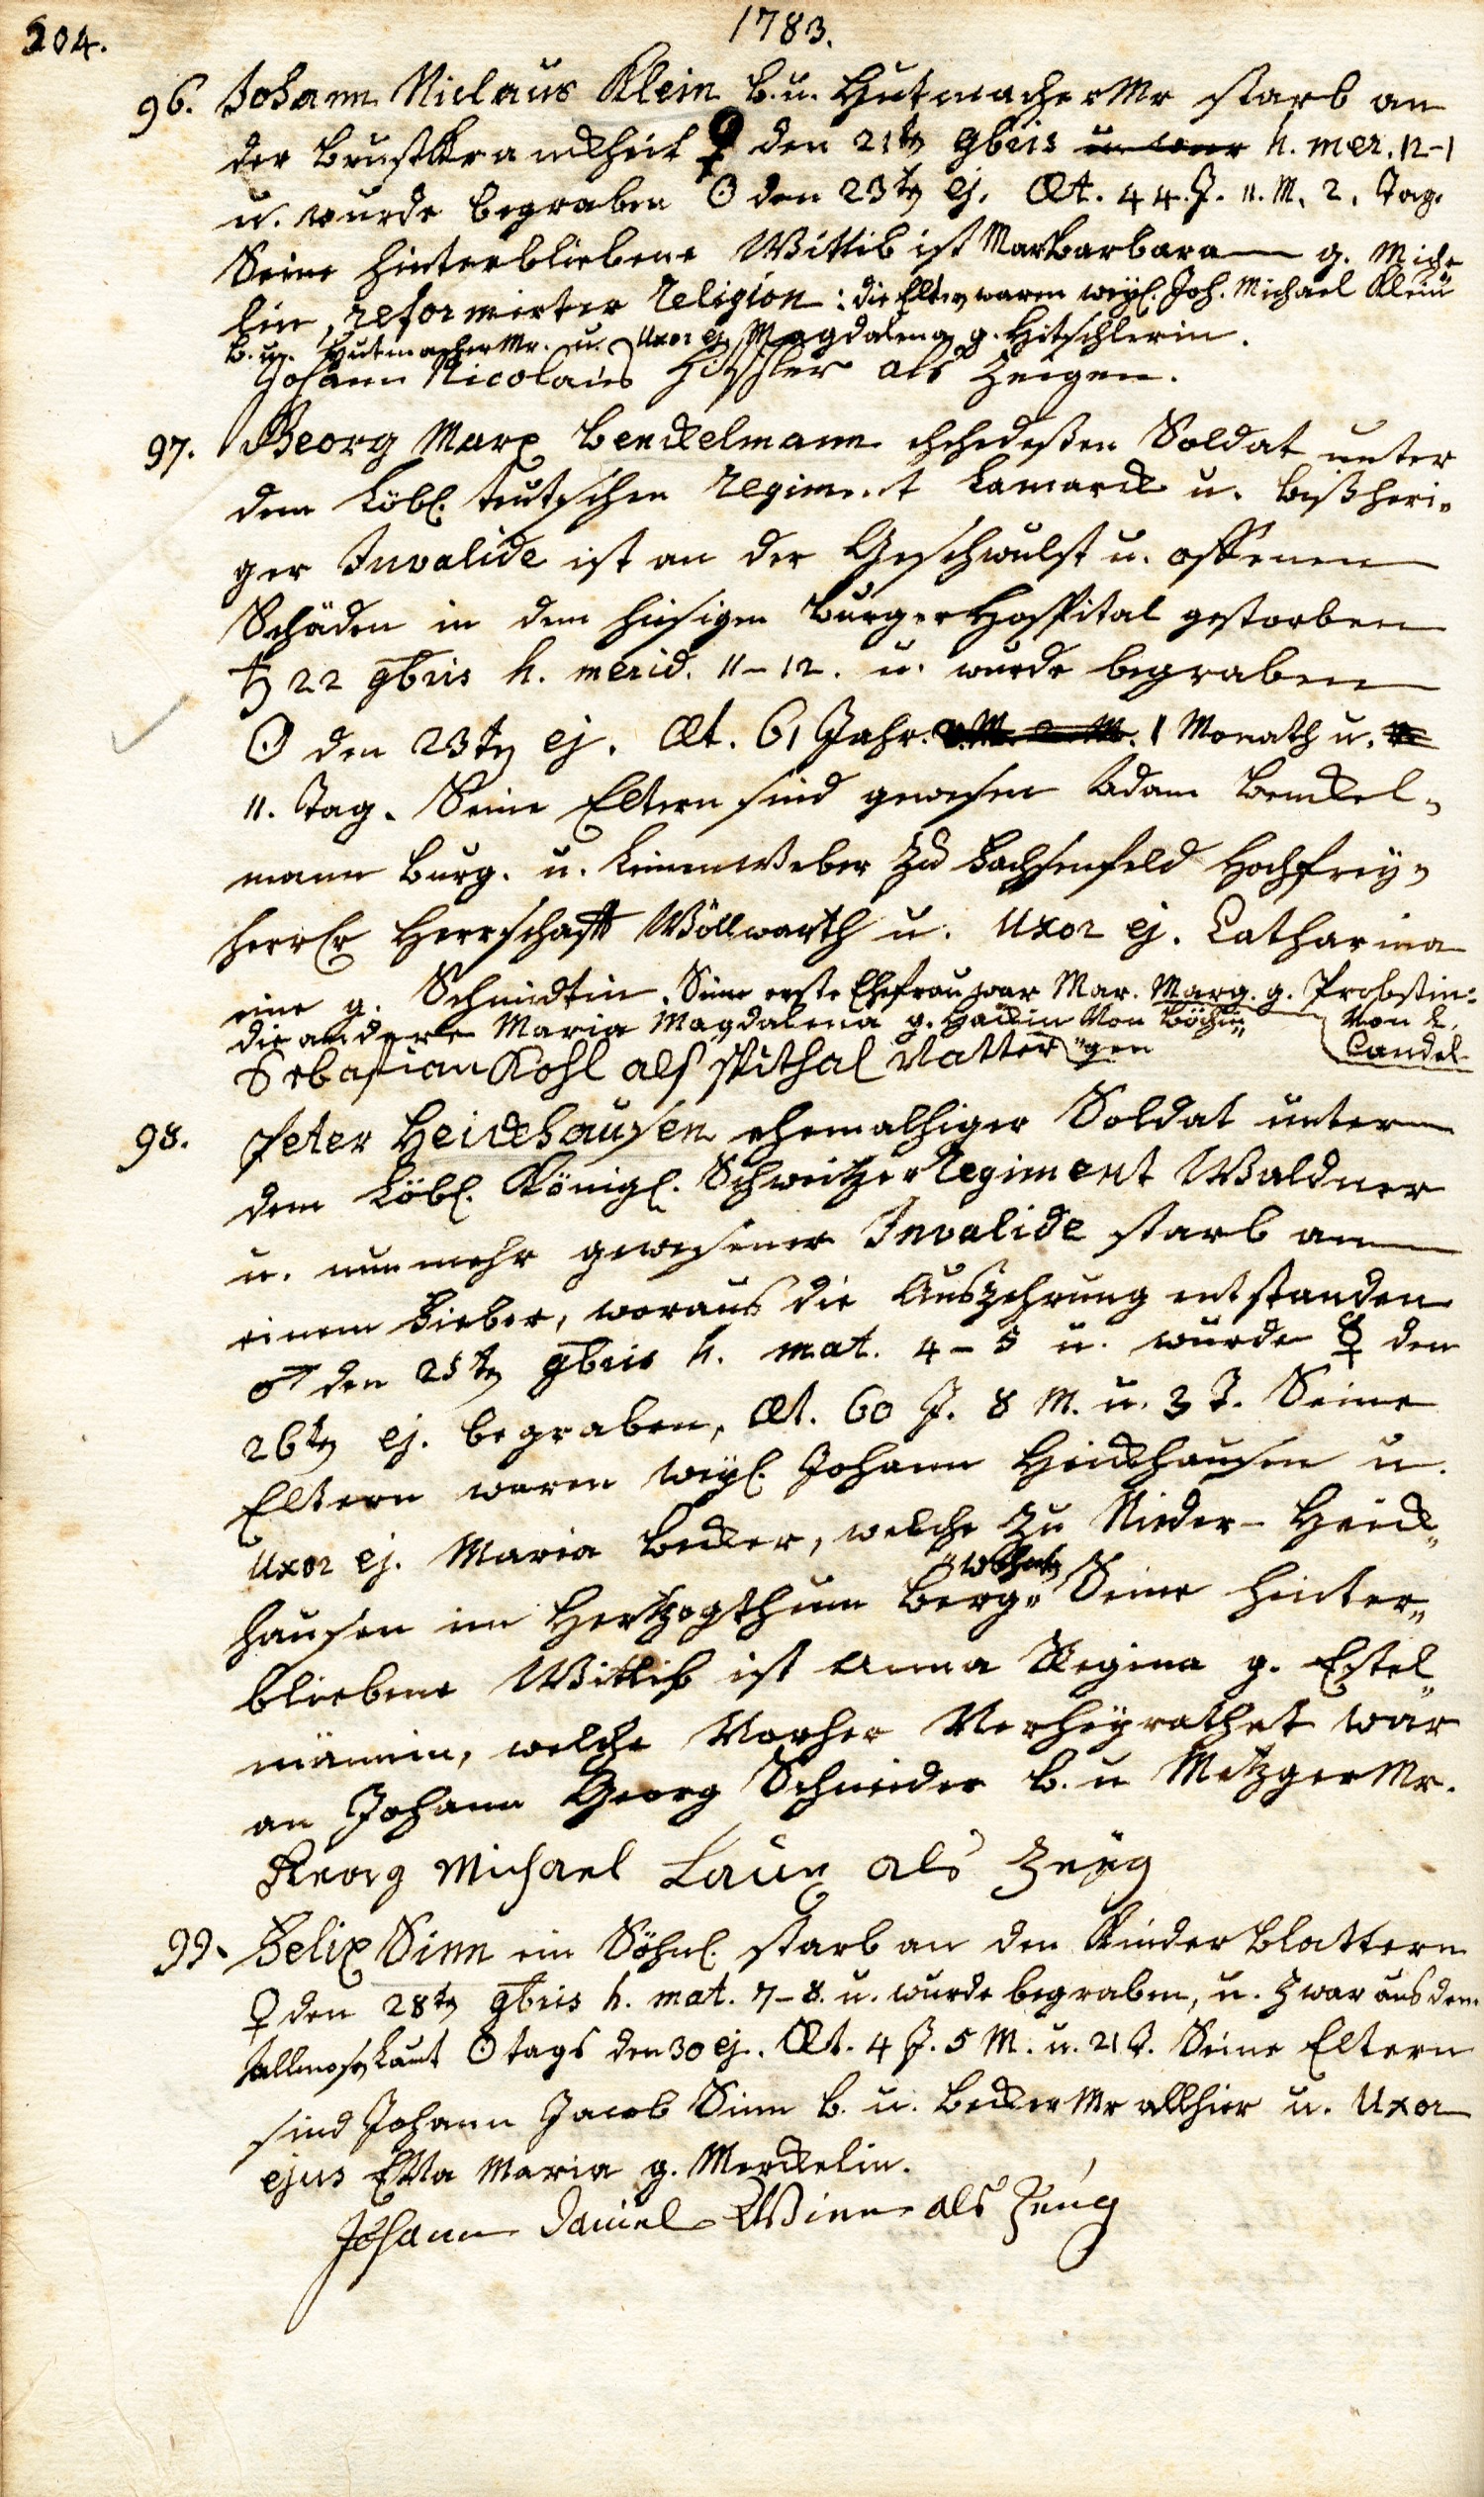 204.
1783.
96. Johann Niclaus Klein B. u. Hutmacher Mr starb an
der Brustkranckheit ♀ den 21ten 9bris u. war h. mer. 12-1
u. wurde begraben ☉ den 23ten ej. Æt. 44. J. 11. M. 2. Tag.
Seine hinterbliebene Wittib ist Mar Barbara g. Miche
lin, reformirter Religion: die Eltern waren weyl. Joh. Michael Klein
B. u. Hutmacher Mr. u. Uxor ej. Magdalena g. Hitschlerin.
Johann Nicolaus Hitschler als Zeugen.
97. Georg Marx Benckelmann ehedeßen Soldat unter
dem Löbl. teutschen Regiment Lamarck u. bißheri-
ger Invalide ist an der Geschwulst u. offenen
Schäden in dem hiesigen Burger Hospital gestorben
♄ 22 9bris h. merid. 11-12. u. wurde begraben
☉ den 23ten ej. Æt. 61 Jahr. 1 Monath u.
11. Tag. Seine Eltern sind gewesen Adam Benckel-
mann Burg. u. Leinenweber zu Lachsenfeld Hochfrey-
herrl. Herrschafft Wöllwarth u. Uxor ej. Catharina
eine g. Schmidtin. Seine erste Ehefrau war Mar. Marg. g. Probstin:
von L.
Candel
die andere Maria Magdalena g. Hackin von Böchin-
gen
Sebastian Kohl als spithal Vatter
98. Peter Heickhausen ehemalhiger Soldat unter
dem Löbl. Königl. Schweitzer Regiment Waldner
u. nunmehr gewesener Invalide starb an
einem Fieber, woraus die Auszehrung entstanden
♂ den 25ten 9bris h. mat. 4-5 u. wurde ☿ den
26ten ej. begraben, Æt. 60 J. 8 M. u. 3 T. Seine
Eltern waren weyl. Johann Heickhausen u.
Uxor ej. Maria Becker, welche zu Nieder-Heick-
hausen im Hertzogthum Berg wohnten Seine hinter-
bliebene Wittib ist Anna Regina g. Estel-
männin, welche vorher verheyrathet war
an Johann Georg Schneider B. u Metzger Mr.
Georg Michael Laux als Zeug
99. Felix Sinn ein Söhnl. starb an den Kinder Blattern
♀ den 28ten 9bris h. mat. 7-8. u. wurde begraben, u. zwar aus dem
allmosen Laut ☉ tags den 30 ej. Æt. 4 J. 5 M. u. 21 T. Seine Eltern
sind Johann Jacob Sinn B. u. Becker Mr allhier u. Uxor
ejus Eva Maria g. Merckelin.
Johann Daniel Winn als Zeug